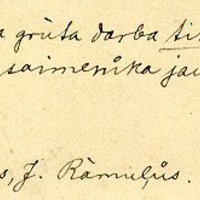 a grūta darba tik
saimenika jau
s, J. Rāmuļus.